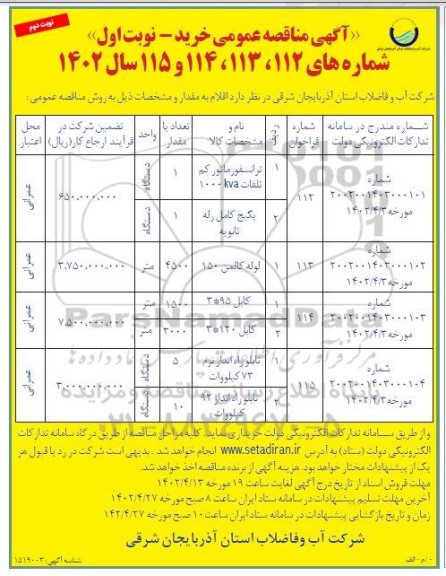 نوبت دوم
«آگهی مناقصه عمومی خرید - نوبت اول»
شماره های ۱۱۲، ۱۱۳، ۱۱۴ و ۱۱۵ سال ۱۴۰۲
شرکت آب و فاضلاب استان آذربایجان شرقی در نظر دارد اقلام به مقدار و مشخصات ذیل به روش مناقصه عمومی:
شماره مندرج در سامانه تدارکات الکترونیکی دولت
شماره فراخوان
ردیف
نام و مشخصات کالا
تعداد یا مقدار
واحد
تضمین شرکت در فرآیند ارجاع کار (ریال)
محل اعتبار
شماره ۲۰۰۲۰۰۱۴۰۳۰۰۰۱۰۱ مورخه ۱۴۰۲/۴/۳
۱۱۲
۱
ترانسفورماتور کم تلفات ۱۰۰۰ kva
۱
دستگاه
۶۵۰,۰۰۰,۰۰۰
عمرانی
۲
پکیج کامل رله ثانویه
۱
دستگاه
شماره ۲۰۰۲۰۰۱۴۰۳۰۰۰۱۰۲ مورخه ۱۴۰۲/۴/۳
۱۱۳
لوله کالفن ۱۵۰
۴۵۰۰
متر
۳,۷۵۰,۰۰۰,۰۰۰
عمرانی
شماره ۲۰۰۲۰۰۱۴۰۳۰۰۰۱۰۳ مورخه ۱۴۰۲/۴/۳
۱۱۴
۱
کابل ۹۵*۳
۱۵۰۰
متر
۷,۵۰۰,۰۰۰,۰۰۰
عمرانی
۲
کابل ۱۲۰*۳
۳۰۰۰
متر
شماره ۲۰۰۲۰۰۱۴۰۳۰۰۰۱۰۴ مورخه ۱۴۰۲/۴/۳
۱۱۵
۱
تابلو راه انداز نرم ۷۳ کیلووات
۵
دستگاه
۳,۰۰۰,۰۰۰,۰۰۰
عمرانی
۲
تابلو راه انداز ۹۲ کیلووات
۱۰
دستگاه
و از طریق سامانه تدارکات الکترونیکی دولت خریداری نماید. کلیه مراحل مناقصه از طریق درگاه سامانه تدارکات
الکترونیکی دولت (ستاد) به آدرس www.setadiran.ir انجام خواهد شد. بدیهی است شرکت در رد یا قبول هر
یک از پیشنهادات مختار خواهد بود. هزینه آگهی از برنده مناقصه اخذ خواهد شد.
مهلت فروش اسناد از تاریخ درج آگهی لغایت ساعت ۱۹ مورخه ۱۴۰۲/۴/۱۳
آخرین مهلت تسلیم پیشنهادات در سامانه ستاد ایران ساعت ۸ صبح مورخه ۱۴۰۲/۴/۲۷
زمان و تاریخ بازگشایی پیشنهادات در سامانه ستاد ایران ساعت ۱۰ صبح مورخه ۱۴۲/۴/۲۷
شرکت آب و فاضلاب استان آذربایجان شرقی
شناسه آگهی: ۱۵۱۹۰۰۳
م/الف
ParsNamadData